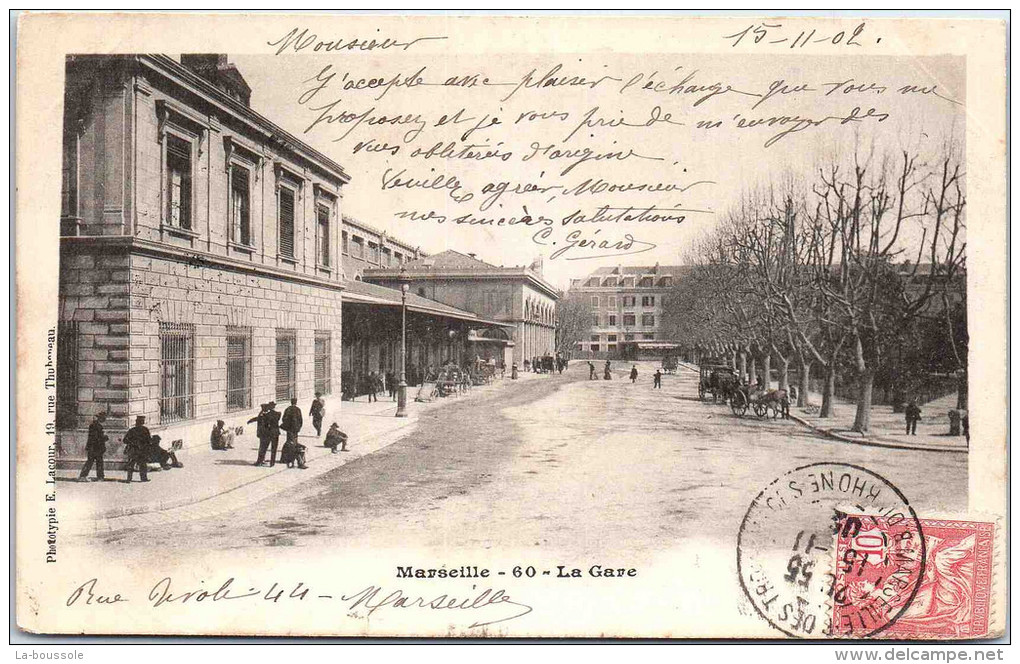 Monsieur 15-11-02.
J'accepte avec plaisir l'échange que vous me
proposez et je vous prie de m'envoyer des
vues oblitérées d'origine.
Veuillez agréer Monsieur
mes sincères salutations
C. Gérard
Phototypie E. Lacour, 19, rue Thubaneau.
Marseille - 60 - La Gare
Rue Tivoli 44 - Marseille
MARSEILLE
B. DU RHONE
15
11
02
10
La-boussole
www.delcampe.net